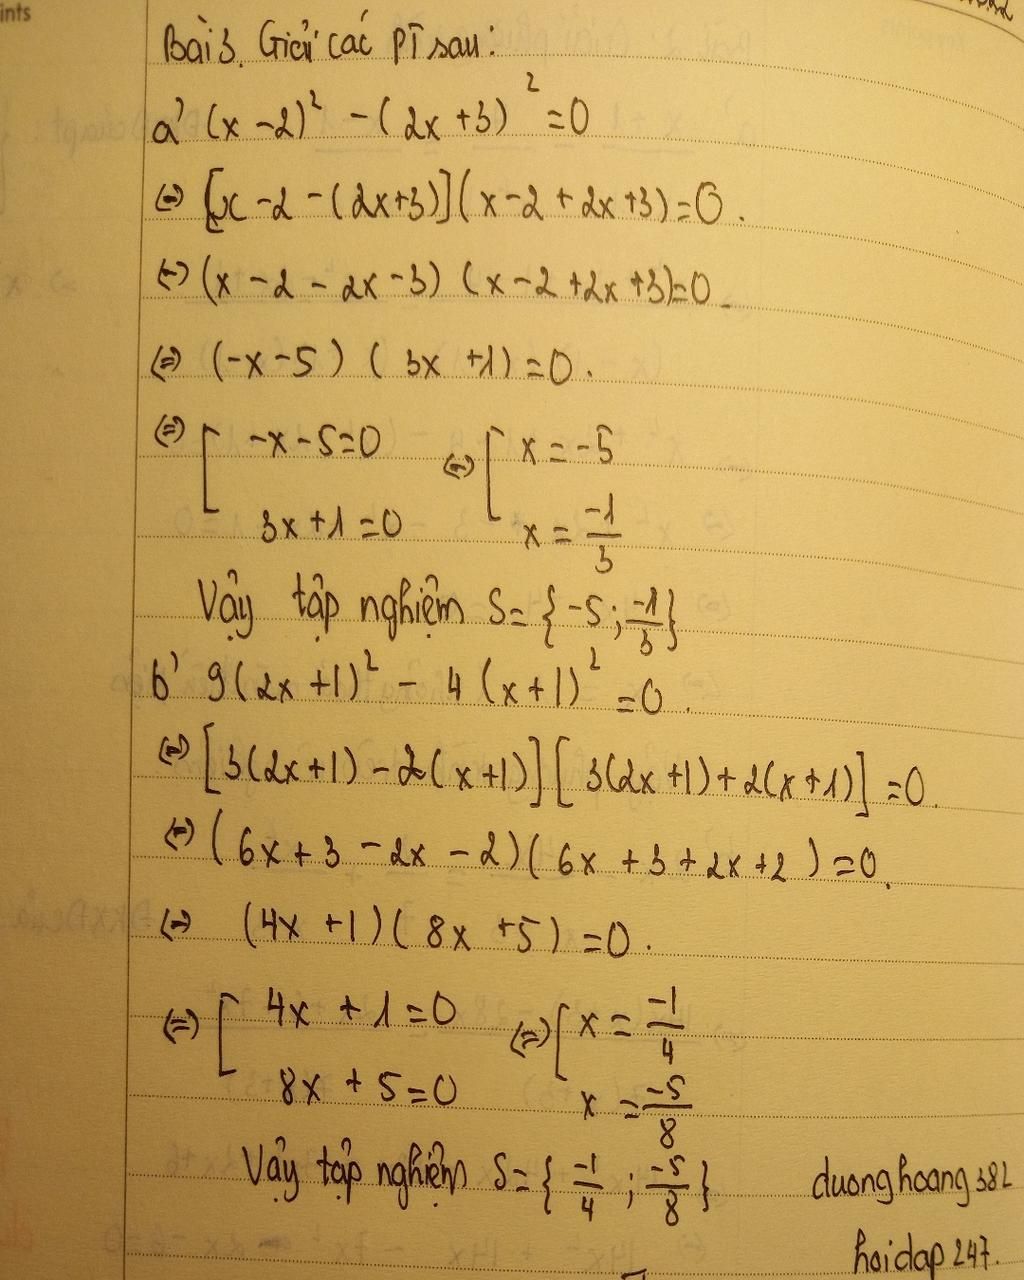 ints
Bài 3. Giải các PT sau:
a) (x - 2)² - (2x + 3)² = 0
⇔ [x - 2 - (2x + 3)] (x - 2 + 2x + 3) = 0.
⇔ (x - 2 - 2x - 3) (x - 2 + 2x + 3) = 0.
⇔ (-x - 5) (3x + 1) = 0.
⇔ [ -x - 5 = 0 ⇔ [ x = -5
3x + 1 = 0 x = -1/3
Vậy tập nghiệm S = {-5; -1/3}
b) 9(2x + 1)² - 4(x + 1)² = 0.
⇔ [3(2x + 1) - 2(x + 1)] [3(2x + 1) + 2(x + 1)] = 0.
⇔ (6x + 3 - 2x - 2) (6x + 3 + 2x + 2) = 0.
⇔ (4x + 1) (8x + 5) = 0.
⇔ [ 4x + 1 = 0 ⇔ [ x = -1/4
8x + 5 = 0 x = -5/8
Vậy tập nghiệm S = {-1/4; -5/8}
duonghoang382
hoidap247.